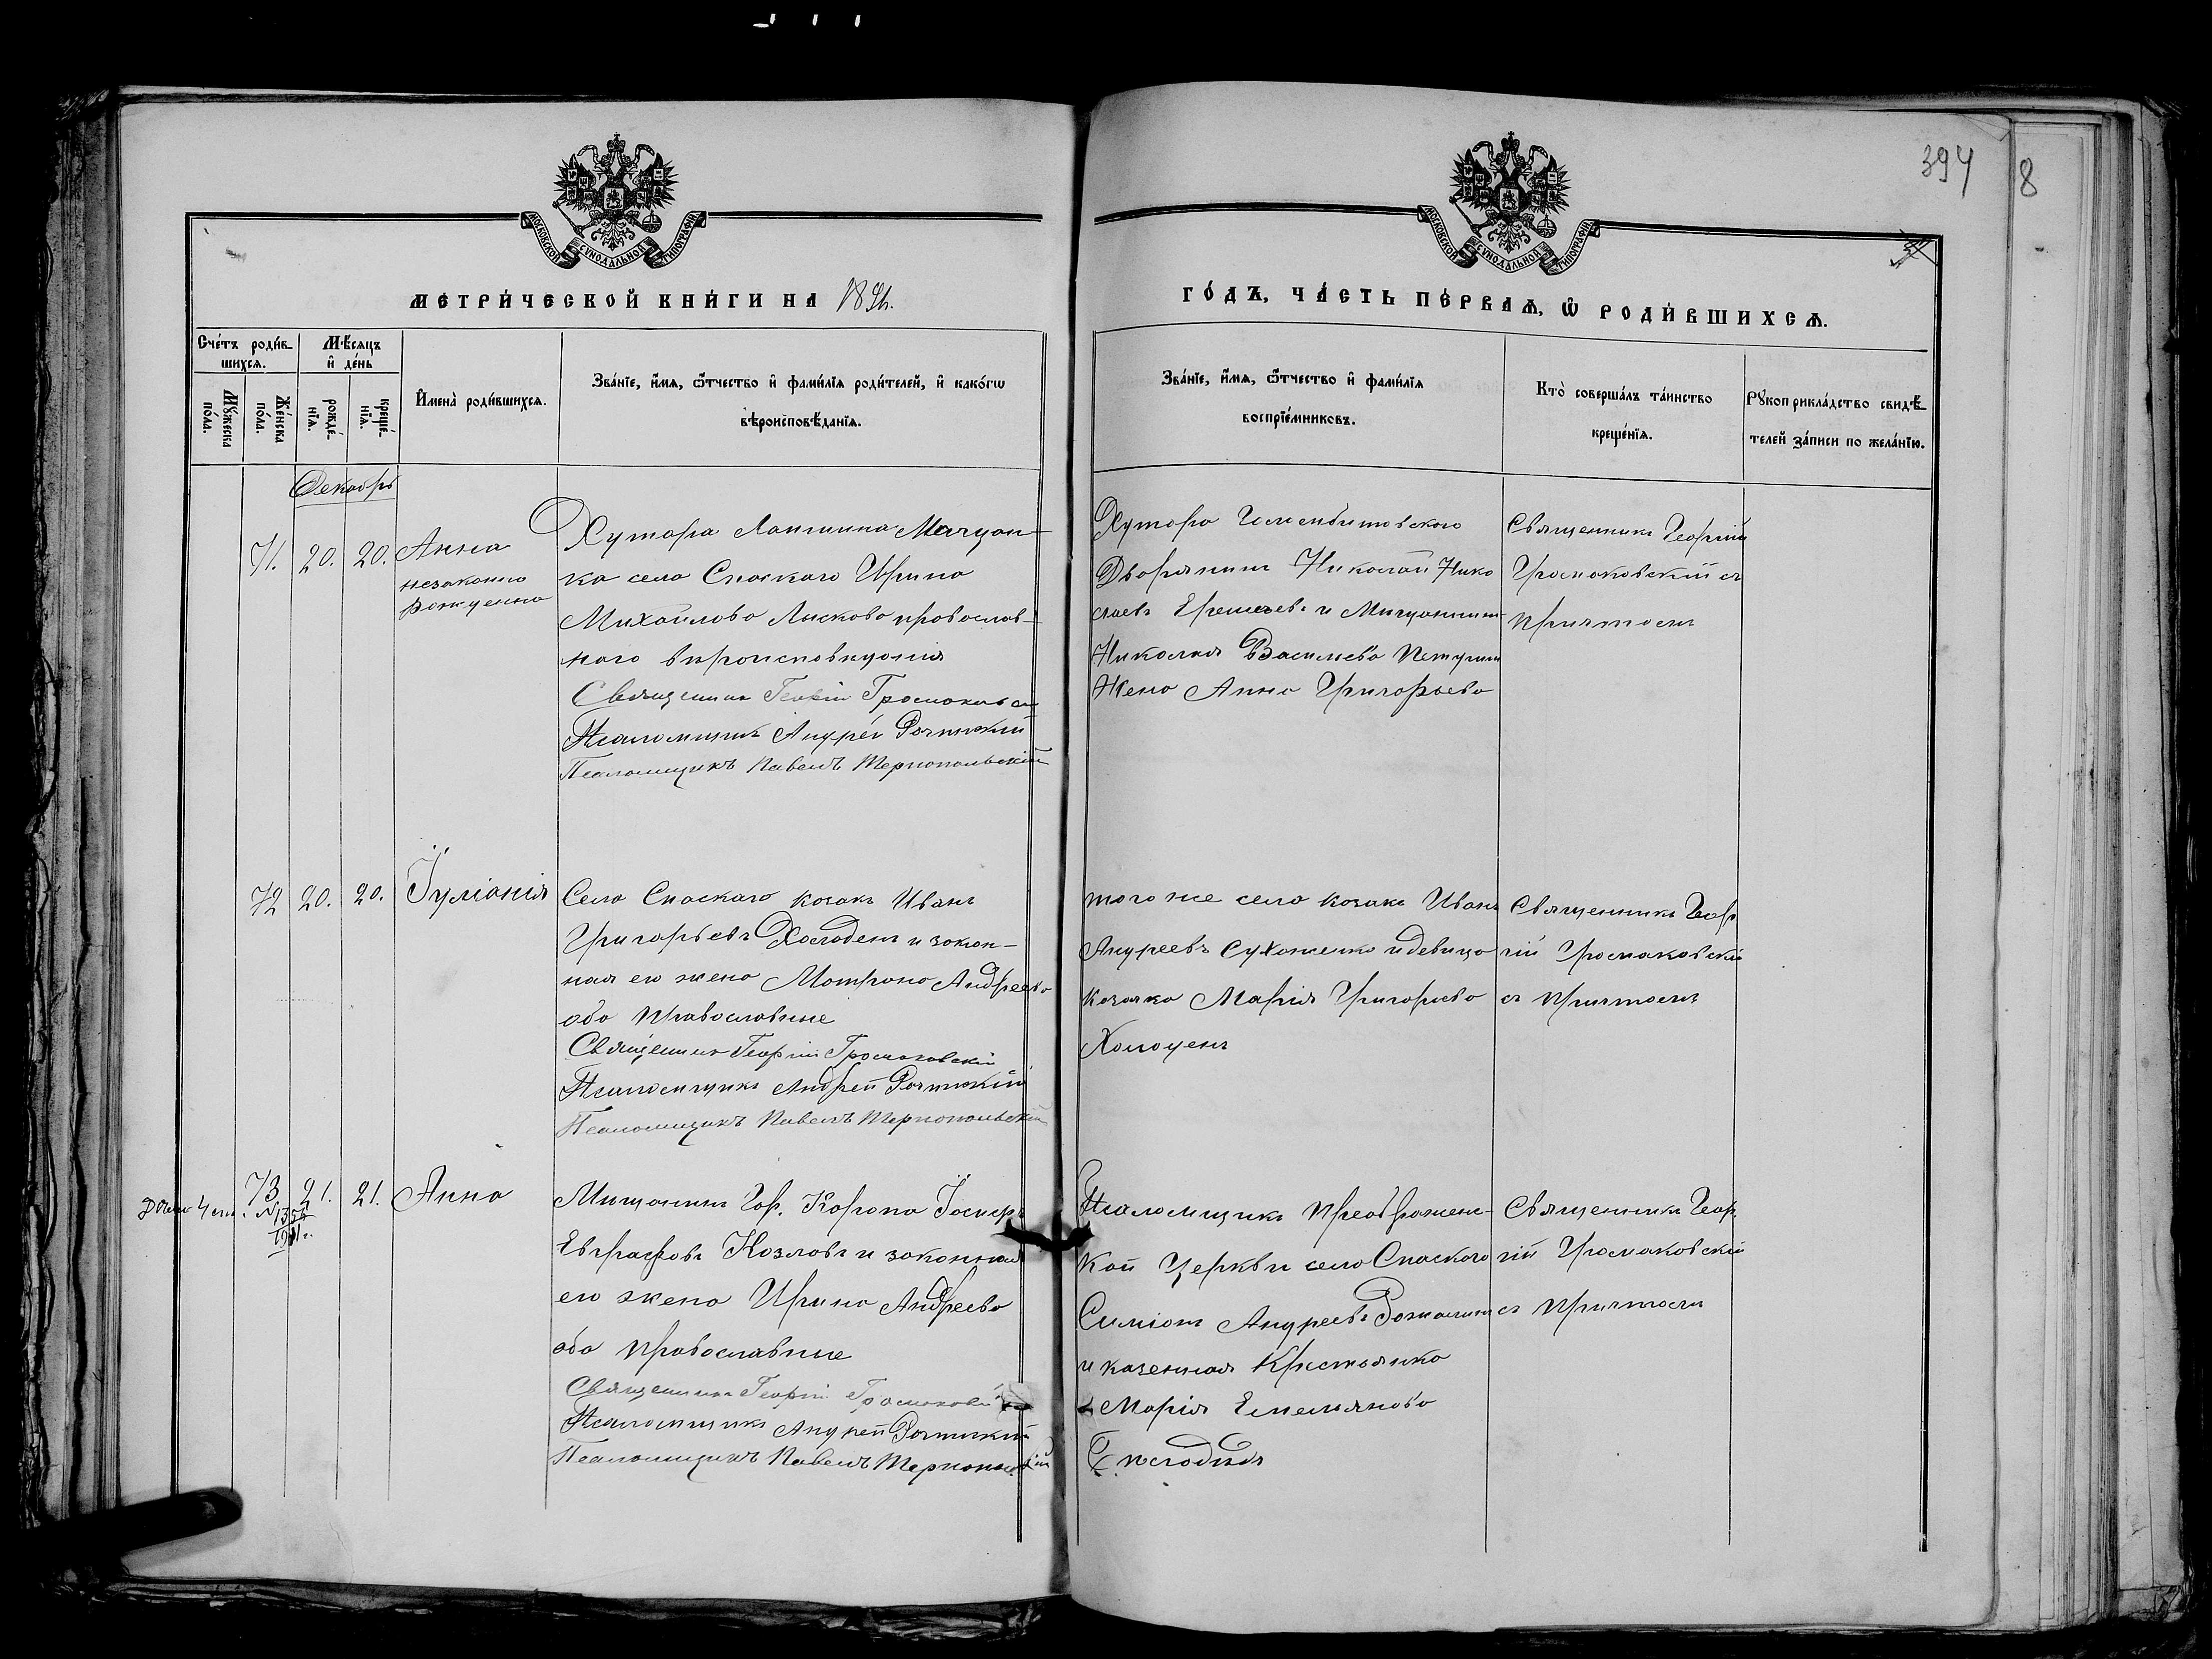 394
8
МОСКОВСКОЙ СѴНОДАЛЬНОЙ ТИПОГРАФІИ
МОСКОВСКОЙ СѴНОДАЛЬНОЙ ТИПОГРАФІИ
МЕТРИ́ЧЕСКОЙ КНИ́ГИ НА
ГО́ДЪ, ЧА́СТЬ ПЕ́РВАѦ, Ѡ҆ РОДИ́ВШИХСѦ.
Сче́тъ роди́в-
шихсѧ.
Мꙋ́жеска по́ла.
Же́нска по́ла.
Мѣ́сяцъ и҆ де́нь
рожде́-
нїѧ.
креще́-
нїѧ.
И҆мена̀ роди́вшихсѧ.
Зва́нїе, и҆́мѧ, ѻ҆́тчество и҆ фами́лїѧ роди́телей, и҆ како́гѡ
вѣроисповѣ́данїѧ.
Зва́нїе, и҆́мѧ, ѻ҆́тчество и҆ фами́лїѧ
воспрїе́мниковъ.
Кто̀ соверша́лъ та́инство
креще́нїѧ.
Рꙋкоприкла́дство свидѣ́-
телей за́писи по жела́нїю.
Декабрь
71. 20. 20. Анна
незаконно
рожденна
Хутора Лапшина Мещан-
ка села Спаского Ирина
Михайлова Лискова православ-
ного вѣроисповѣданія
Священникъ Георгій Громаковскій
Псаломщикъ Андрей
Псаломщикъ Павелъ Тернопольскій
Хутора
Дворянинъ Николай Нико
лаевъ и Мещанина
Николая Васильева
Жена Анна Григорьева
Священникъ Георгій
Громаковскій съ
Причтомъ
72 20. 20. Іуліанія
Села Спаскаго козакъ Иванъ
Григорьевъ Холоденъ и закон-
ная его жена Матрона Андреева
оба православные
Священникъ Георгій Громаковскій
Псаломщикъ Андрей
Псаломщикъ Павелъ Тернопольскій
того же села козакъ Иванъ
Андреевъ Сухоженко и девица
козачка Марія Григорьева
Холоденъ
Священникъ Геор
гій Громаковскій
съ Причтомъ
73. 21. 21. Анна
1901 г.
Мещанинъ Гор. Коропа Іосифъ
Евграфовъ Козловъ и законная
его жена Ирина Андреева
оба православные
Священникъ Георгій
Псаломщикъ Андрей
Псаломщикъ Павелъ
Псаломщикъ Преображенс-
кой Церкви села Спаского
Симіонъ Андреевъ
и казенная Крестьянка
Марія Емельянова
Священникъ Геор
гій Громаковскій
съ Причтомъ